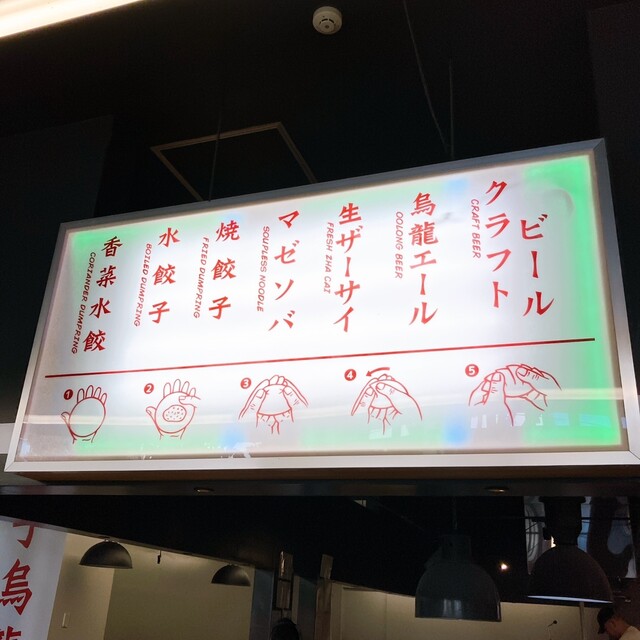 クラフト
ビール
CRAFT BEER
烏龍エール
OOLONG BEER
生ザーサイ
FRESH ZHA CAI
マゼソバ
SOUPLESS NOODLE
焼餃子
FRIED DUMPRING
水餃子
BOILED DUMPRING
香菜水餃
CORIANDER DUMPRING
1
2
3
4
5
子烏龍